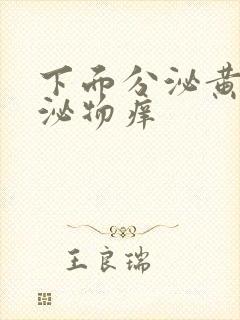 下而分泌黄
泌物痒
王良瑞